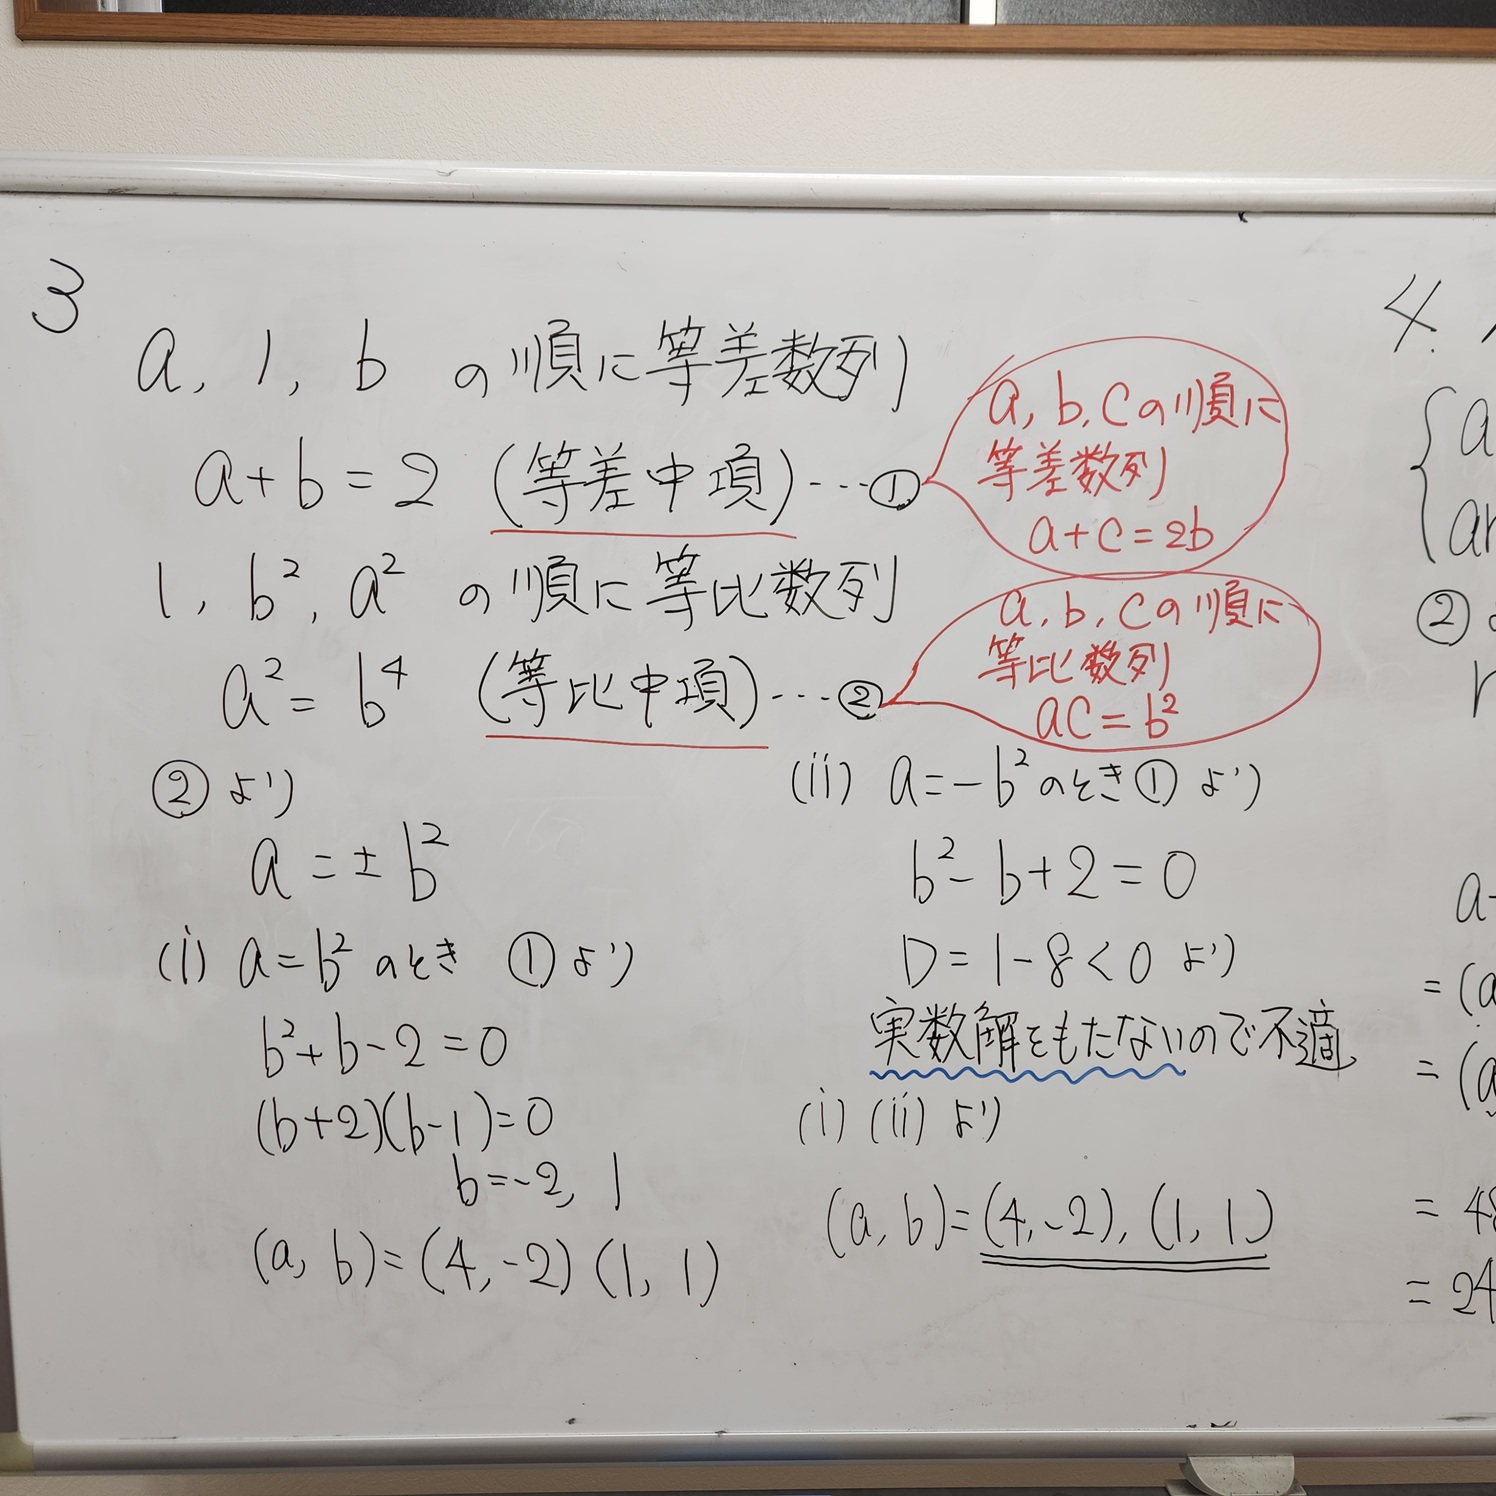 3
a, 1, b の順に等差数列
a+b=2 (等差中項)…①
a, b, cの順に
等差数列
a+c=2b
1, b², a² の順に等比数列
a²= b⁴ (等比中項)…②
a, b, cの順に
等比数列
ac=b²
②より
a=±b²
(i) a=b²のとき ①より
b²+b-2=0
(b+2)(b-1)=0
b=-2, 1
(a, b)=(4,-2)(1, 1)
(ii) a=-b²のとき①より
b²-b+2=0
D=1-8<0 より
実数解をもたないので不適
(i)(ii)より
(a, b)=(4,-2), (1, 1)
4.
{a
ar
②
r
a-
=(a
=(a
=48
=24